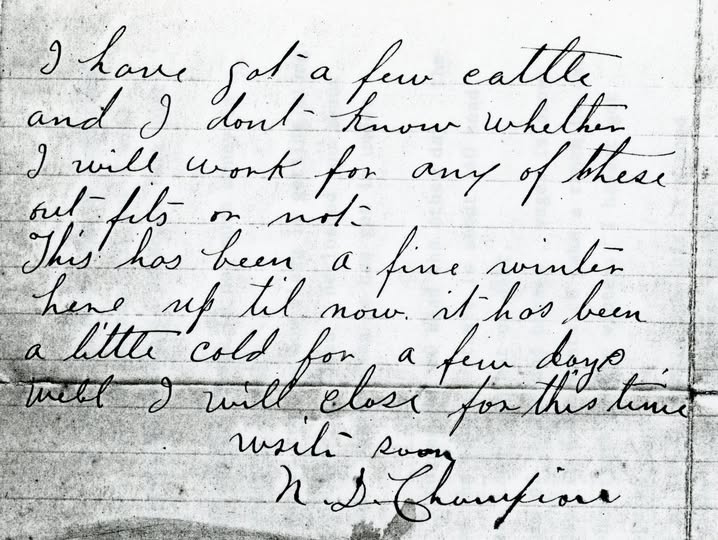 I have got a few cattle
and I dont know whether
I will work for any of these
out fits or not.
This has been a fine winter
here up til now. it has been
a little cold for a few days
well I will close for this time
write soon
N. D. Champion